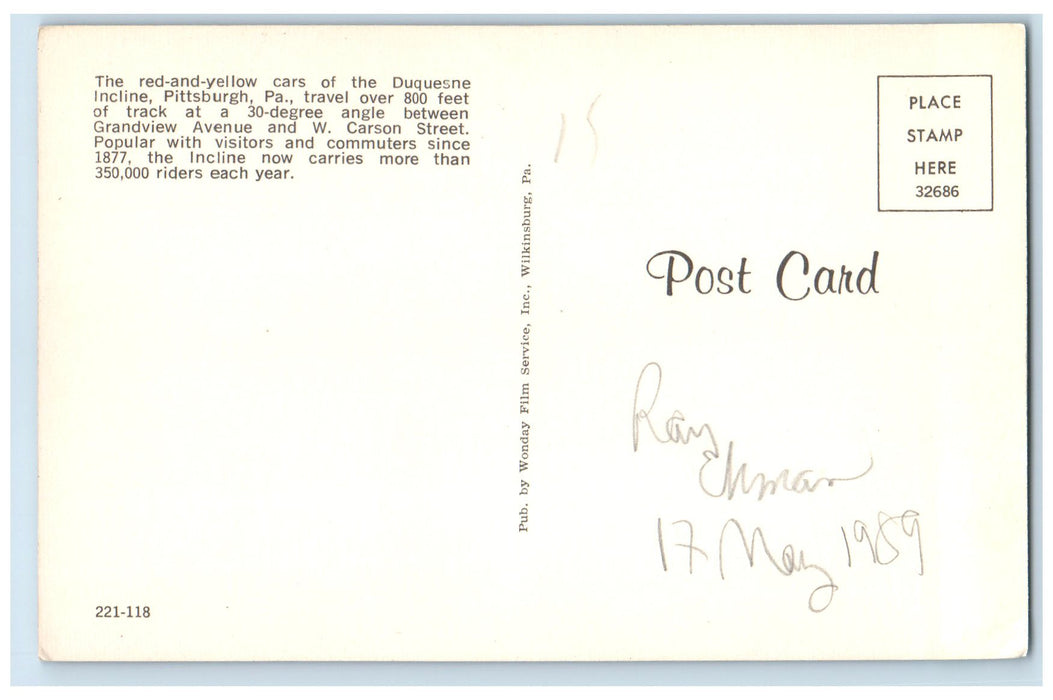 The red-and-yellow cars of the Duquesne
Incline, Pittsburgh, Pa., travel over 800 feet
of track at a 30-degree angle between
Grandview Avenue and W. Carson Street.
Popular with visitors and commuters since
1877, the Incline now carries more than
350,000 riders each year.
221-118
Pub. by Wonday Film Service, Inc., Wilkinsburg, Pa.
15
PLACE
STAMP
HERE
32686
Post Card
Ray
17 May 1989